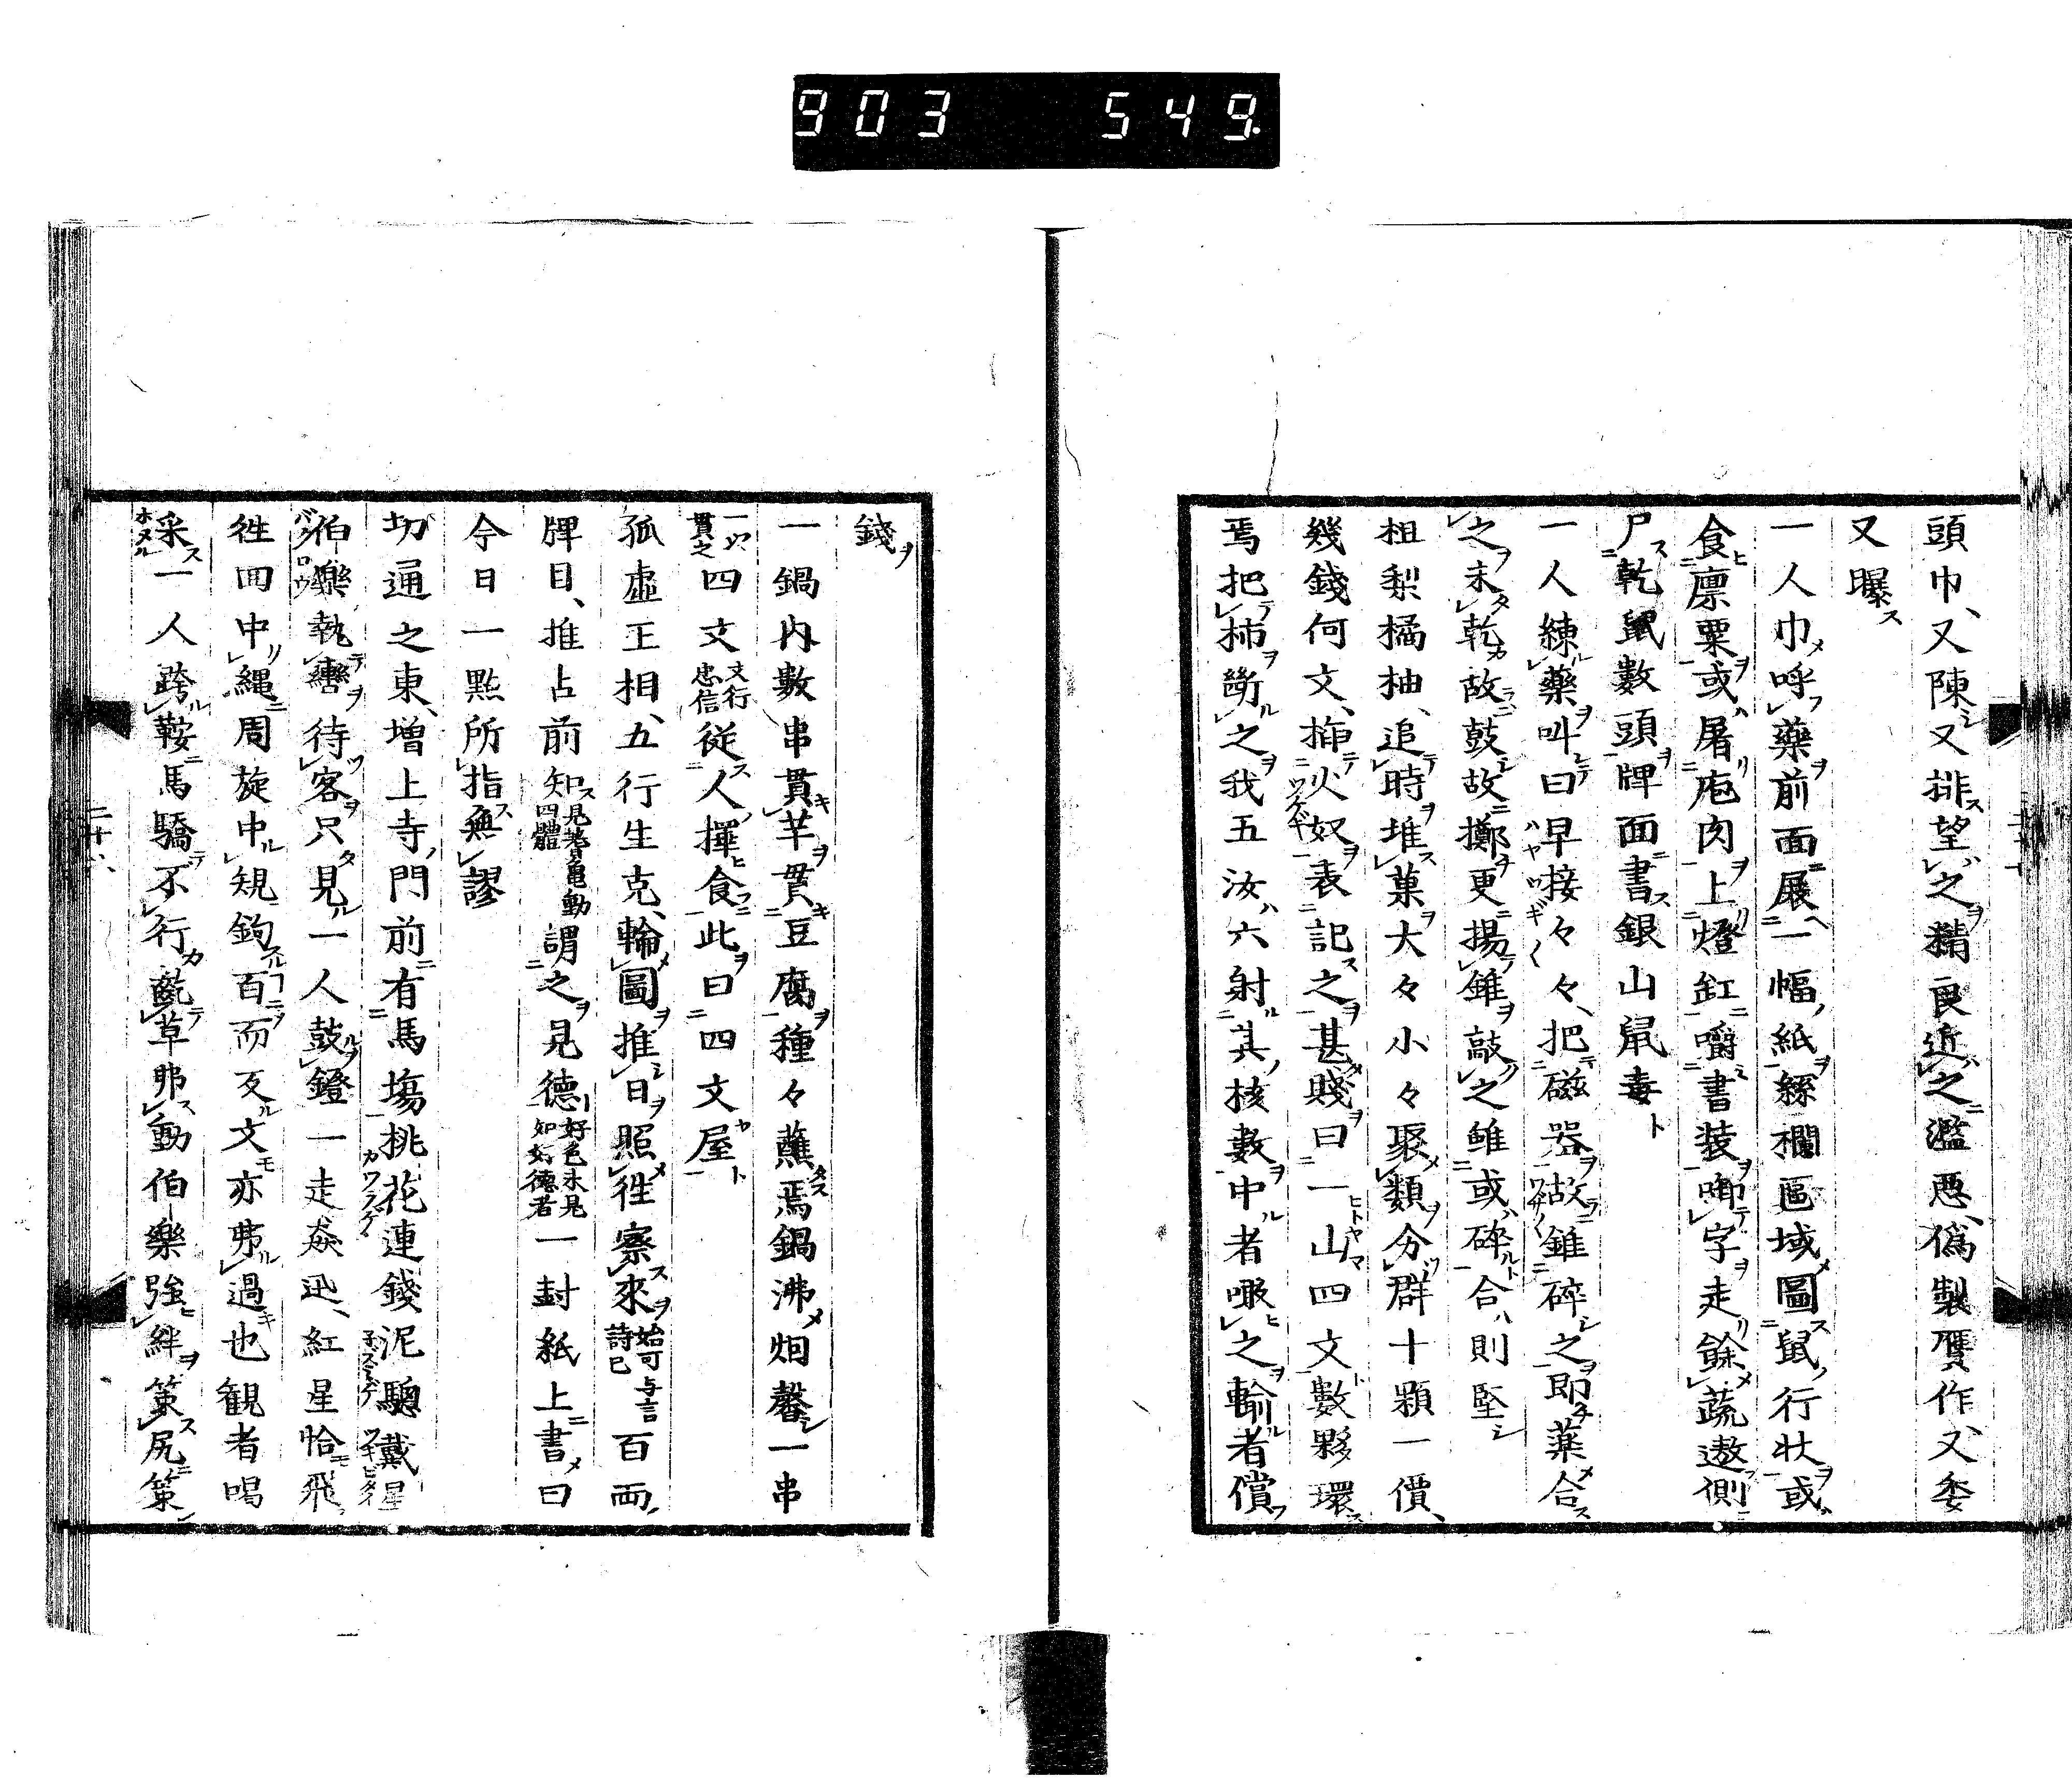 903 549.
頭巾、又陳又排望之精良近之濫惡、偽製贋作、又委
又曝
一人巾呼藥前面展一幅紙絲欄區域圖鼠行狀或
食廪粟或屠庖肉上燈缸嚼書装啣字走餘蔬遨側
尸乾鼠數頭牌面書銀山鼠毒
一人練藥叫曰早接々々、把磁器故錐碎之即藥合
之未乾故鼓故擲更揚錐敲之雖或碎合則堅
柤梨橘柚、追時堆菓大々小々聚類分群十顆一價、
幾錢何文、揷火奴表記之甚賤曰一山四文數夥環
焉把柿斮之我五汝六射其核數中者噉之輸者償
錢
一鍋内數串貫芋貫豆腐種々蘸焉鍋沸烟馨一串
一以貫之四文文行忠信從人擇食此曰四文屋
孤虚王相、五行生克、輪圖推日照徃察來始可与言詩已百両
牌目、推占前知見蓍亀動四體謂之見德好色未見如好德者一封紙上書曰
今日一點所指無謬
切通之東、增上寺門前有馬場桃花連錢泥驄戴星
伯樂執轡待客只見一人鼓鐙一走猋迅、紅星恰飛
徃回中縄周旋中規鉤百而反文亦弗過也観者喝
采一人跨鞍馬驕不行齕草弗動伯樂強絆策尻策
二十八